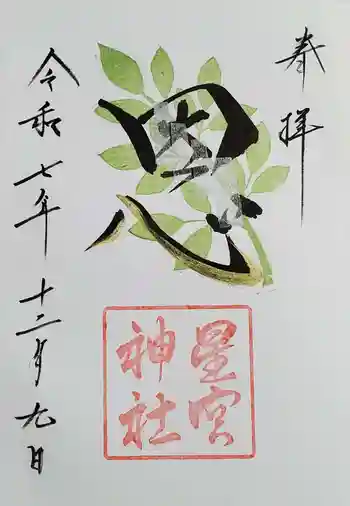 奉拝
恩
星宮
神社
令和七年十二月九日